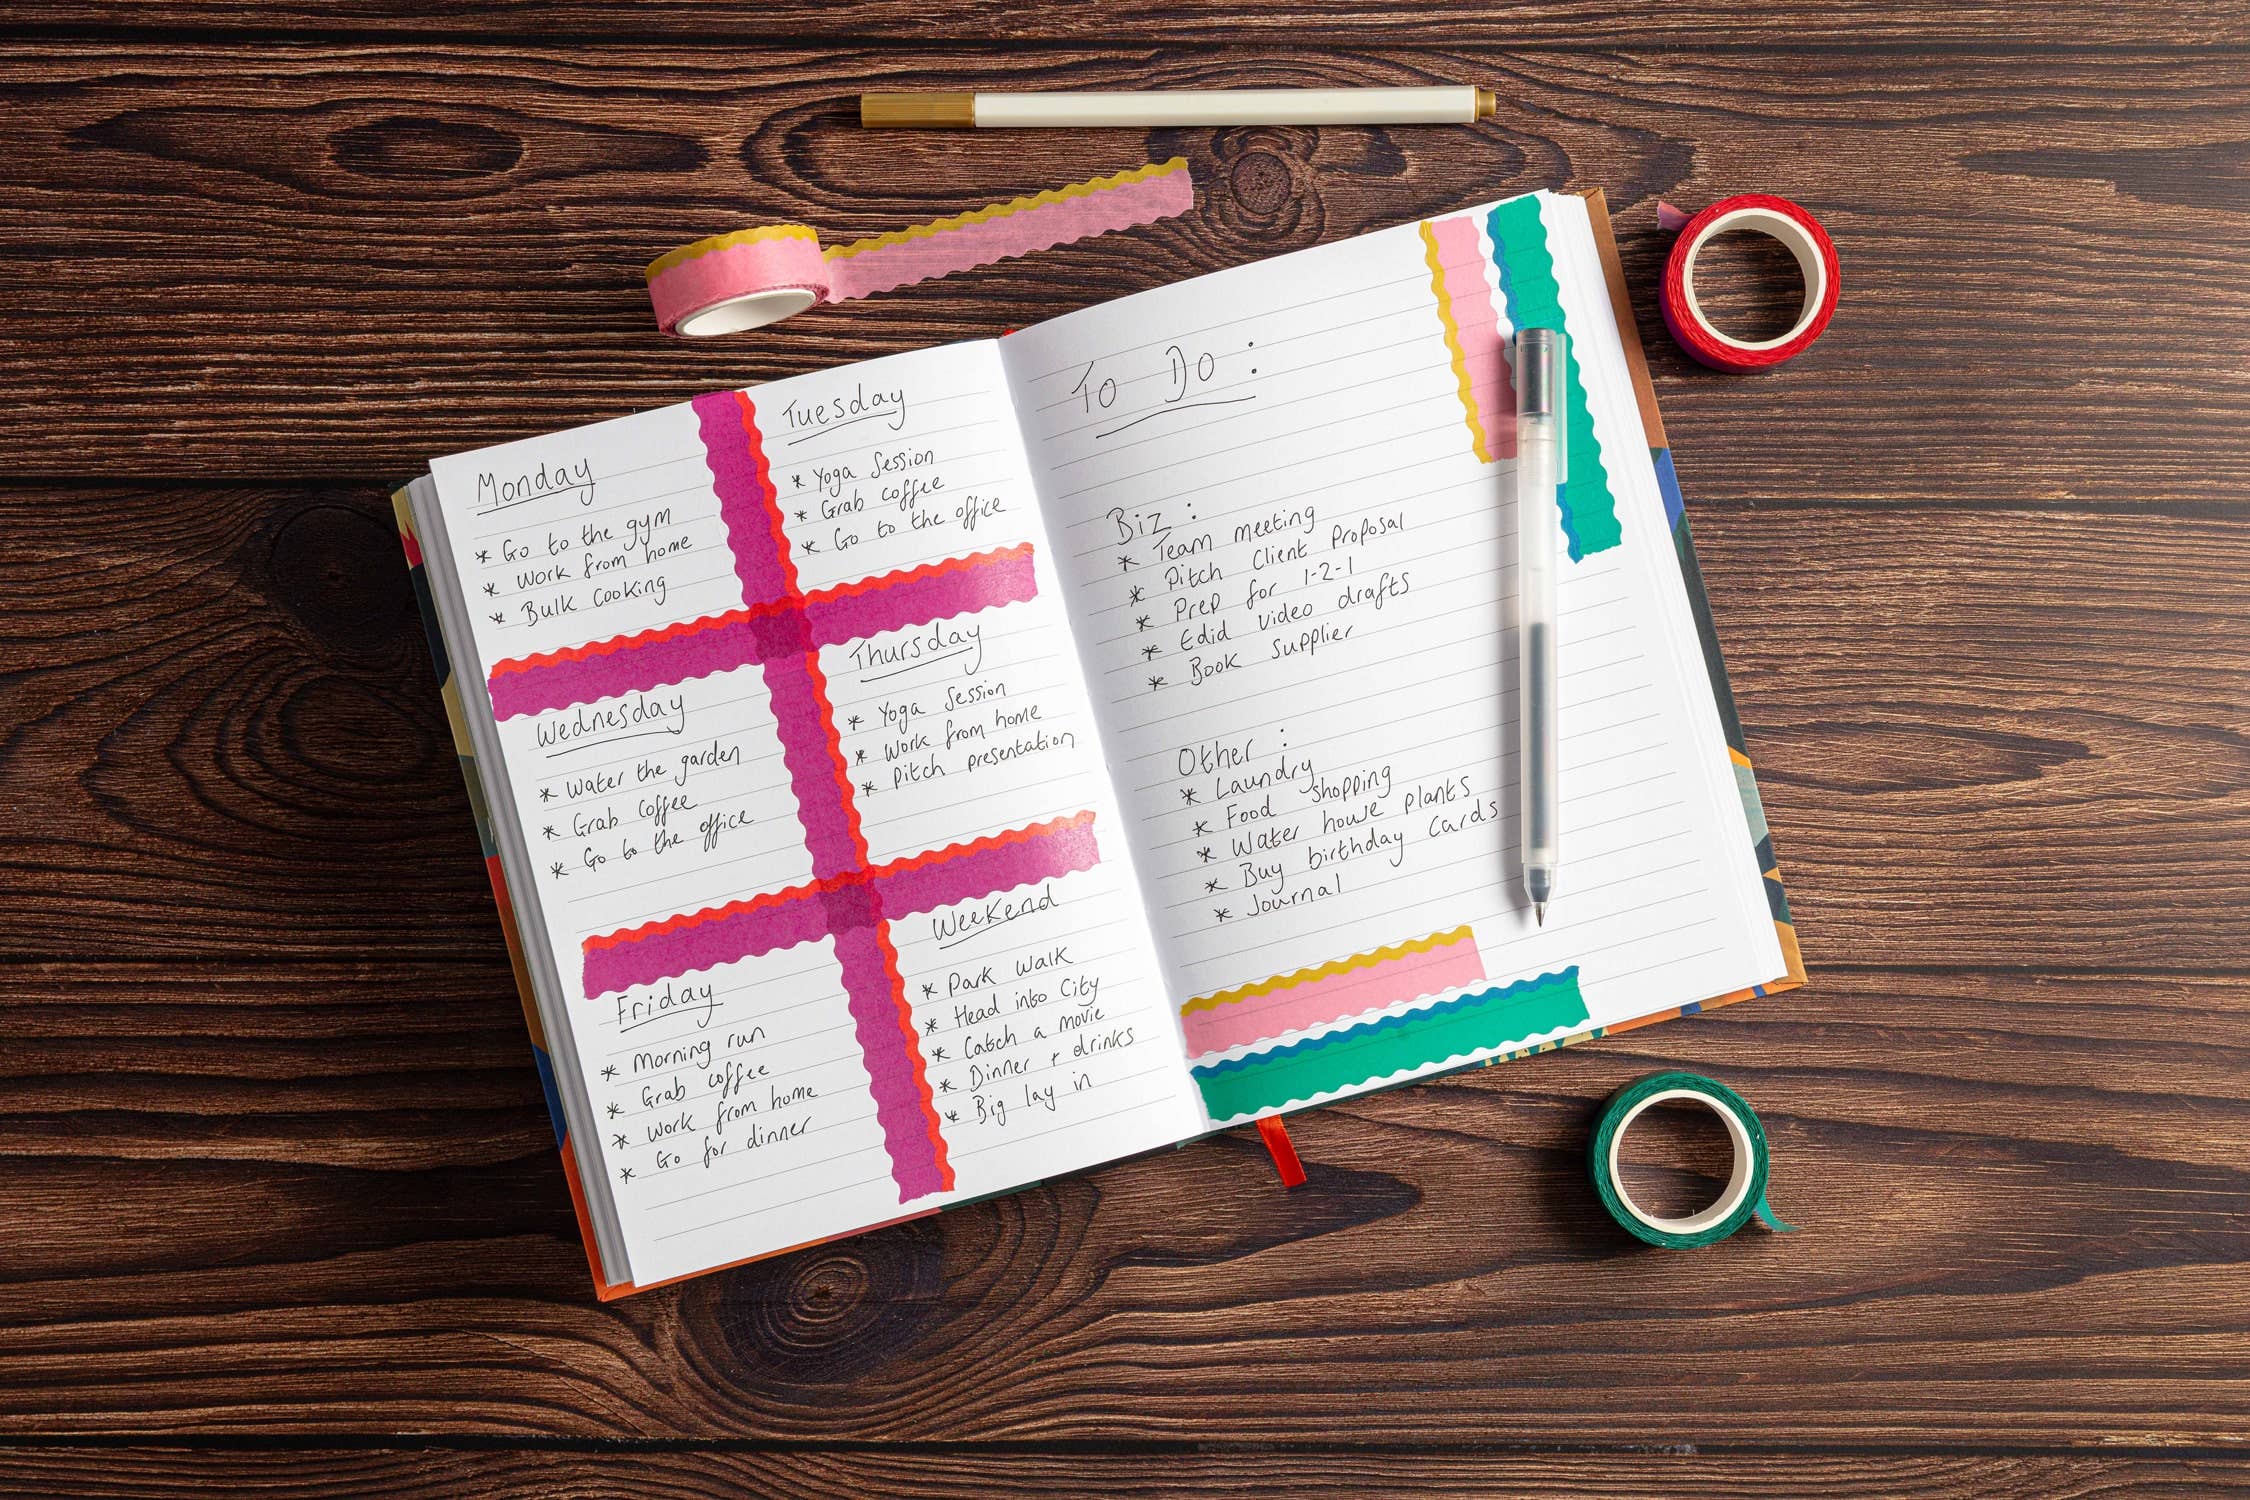 Monday
* Go to the gym
* Work from home
* Bulk cooking
Tuesday
* Yoga Session
* Grab coffee
* Go to the office
Wednesday
* Water the garden
* Grab coffee
* Go to the office
Thursday
* Yoga Session
* Work from home
* Pitch presentation
Friday
* Morning run
* Grab coffee
* Work from home
* Go for dinner
Weekend
* Park Walk
* Head into City
* Catch a movie
* Dinner + drinks
* Big lay in
To Do :
Biz :
* Team meeting
* Pitch Client Proposal
* Prep for 1-2-1
* Edid video drafts
* Book supplier
Other :
* Laundry
* Food shopping
* Water house plants
* Buy birthday cards
* Journal